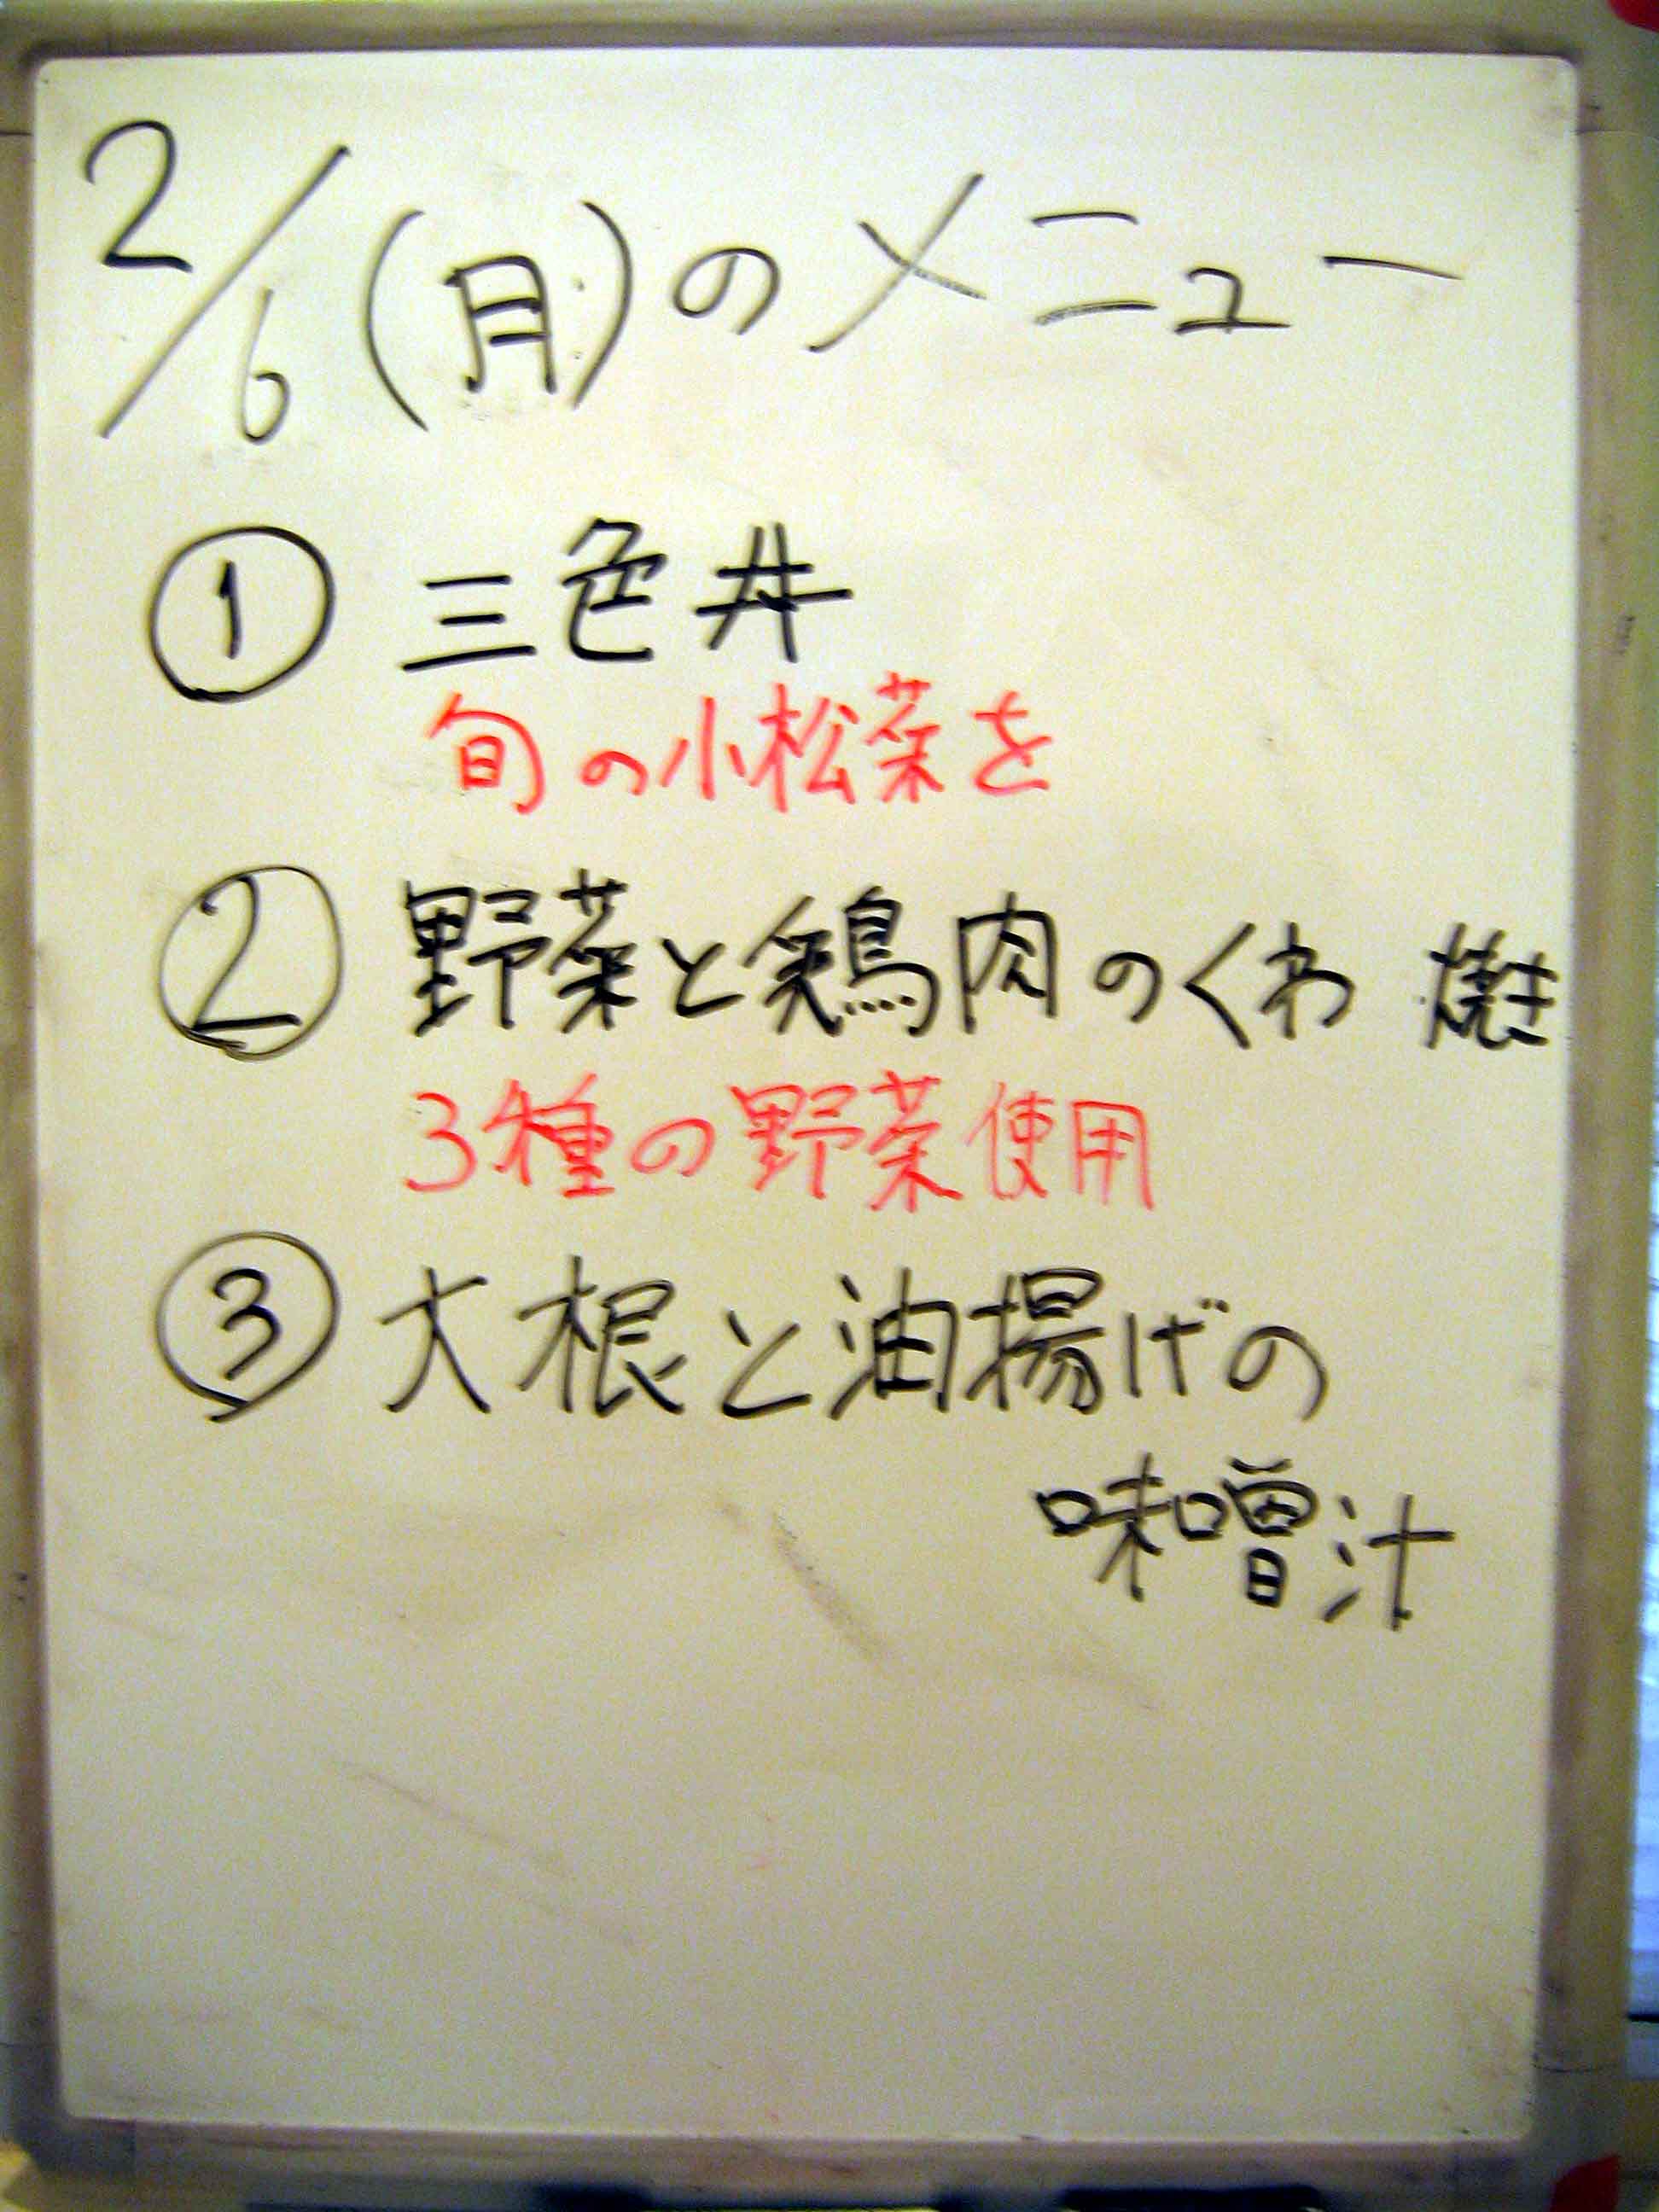 2/6(月)のメニュー
① 三色丼
旬の小松菜を
② 野菜と鶏肉のくわ焼き
3種の野菜使用
③ 大根と油揚げの
味噌汁